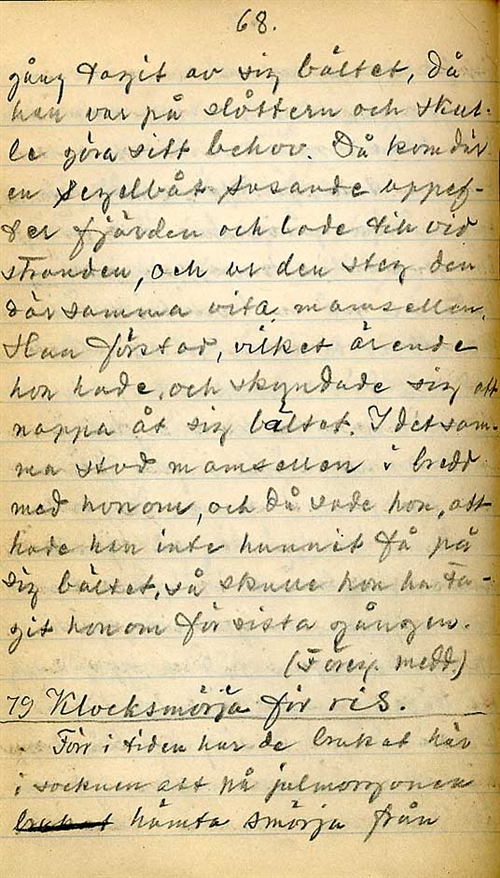 68.
gång tagit av sig bältet, då
han var på slåttern och skul-
le göra sitt behov. Då kom där
en segelbåt susande uppef-
ter fjärden och lade till vid
stranden, och ur den steg den
där samma vita mamsellen.
Han förstod, vilket ärende
hon hade, och skyndade sig att
nappa åt sig bältet. I det sam-
ma stod mamsellen i bredd
med honom, och då sade hon, att
hade han inte hunnit få på
sig bältet, så skulle hon ha ta-
git honom för sista gången.
(Föreg. medd.)
79 Klocksmörja för ris.
Förr i tiden har de brukat här
i socknen att på julmorgonen
hämta smörja från